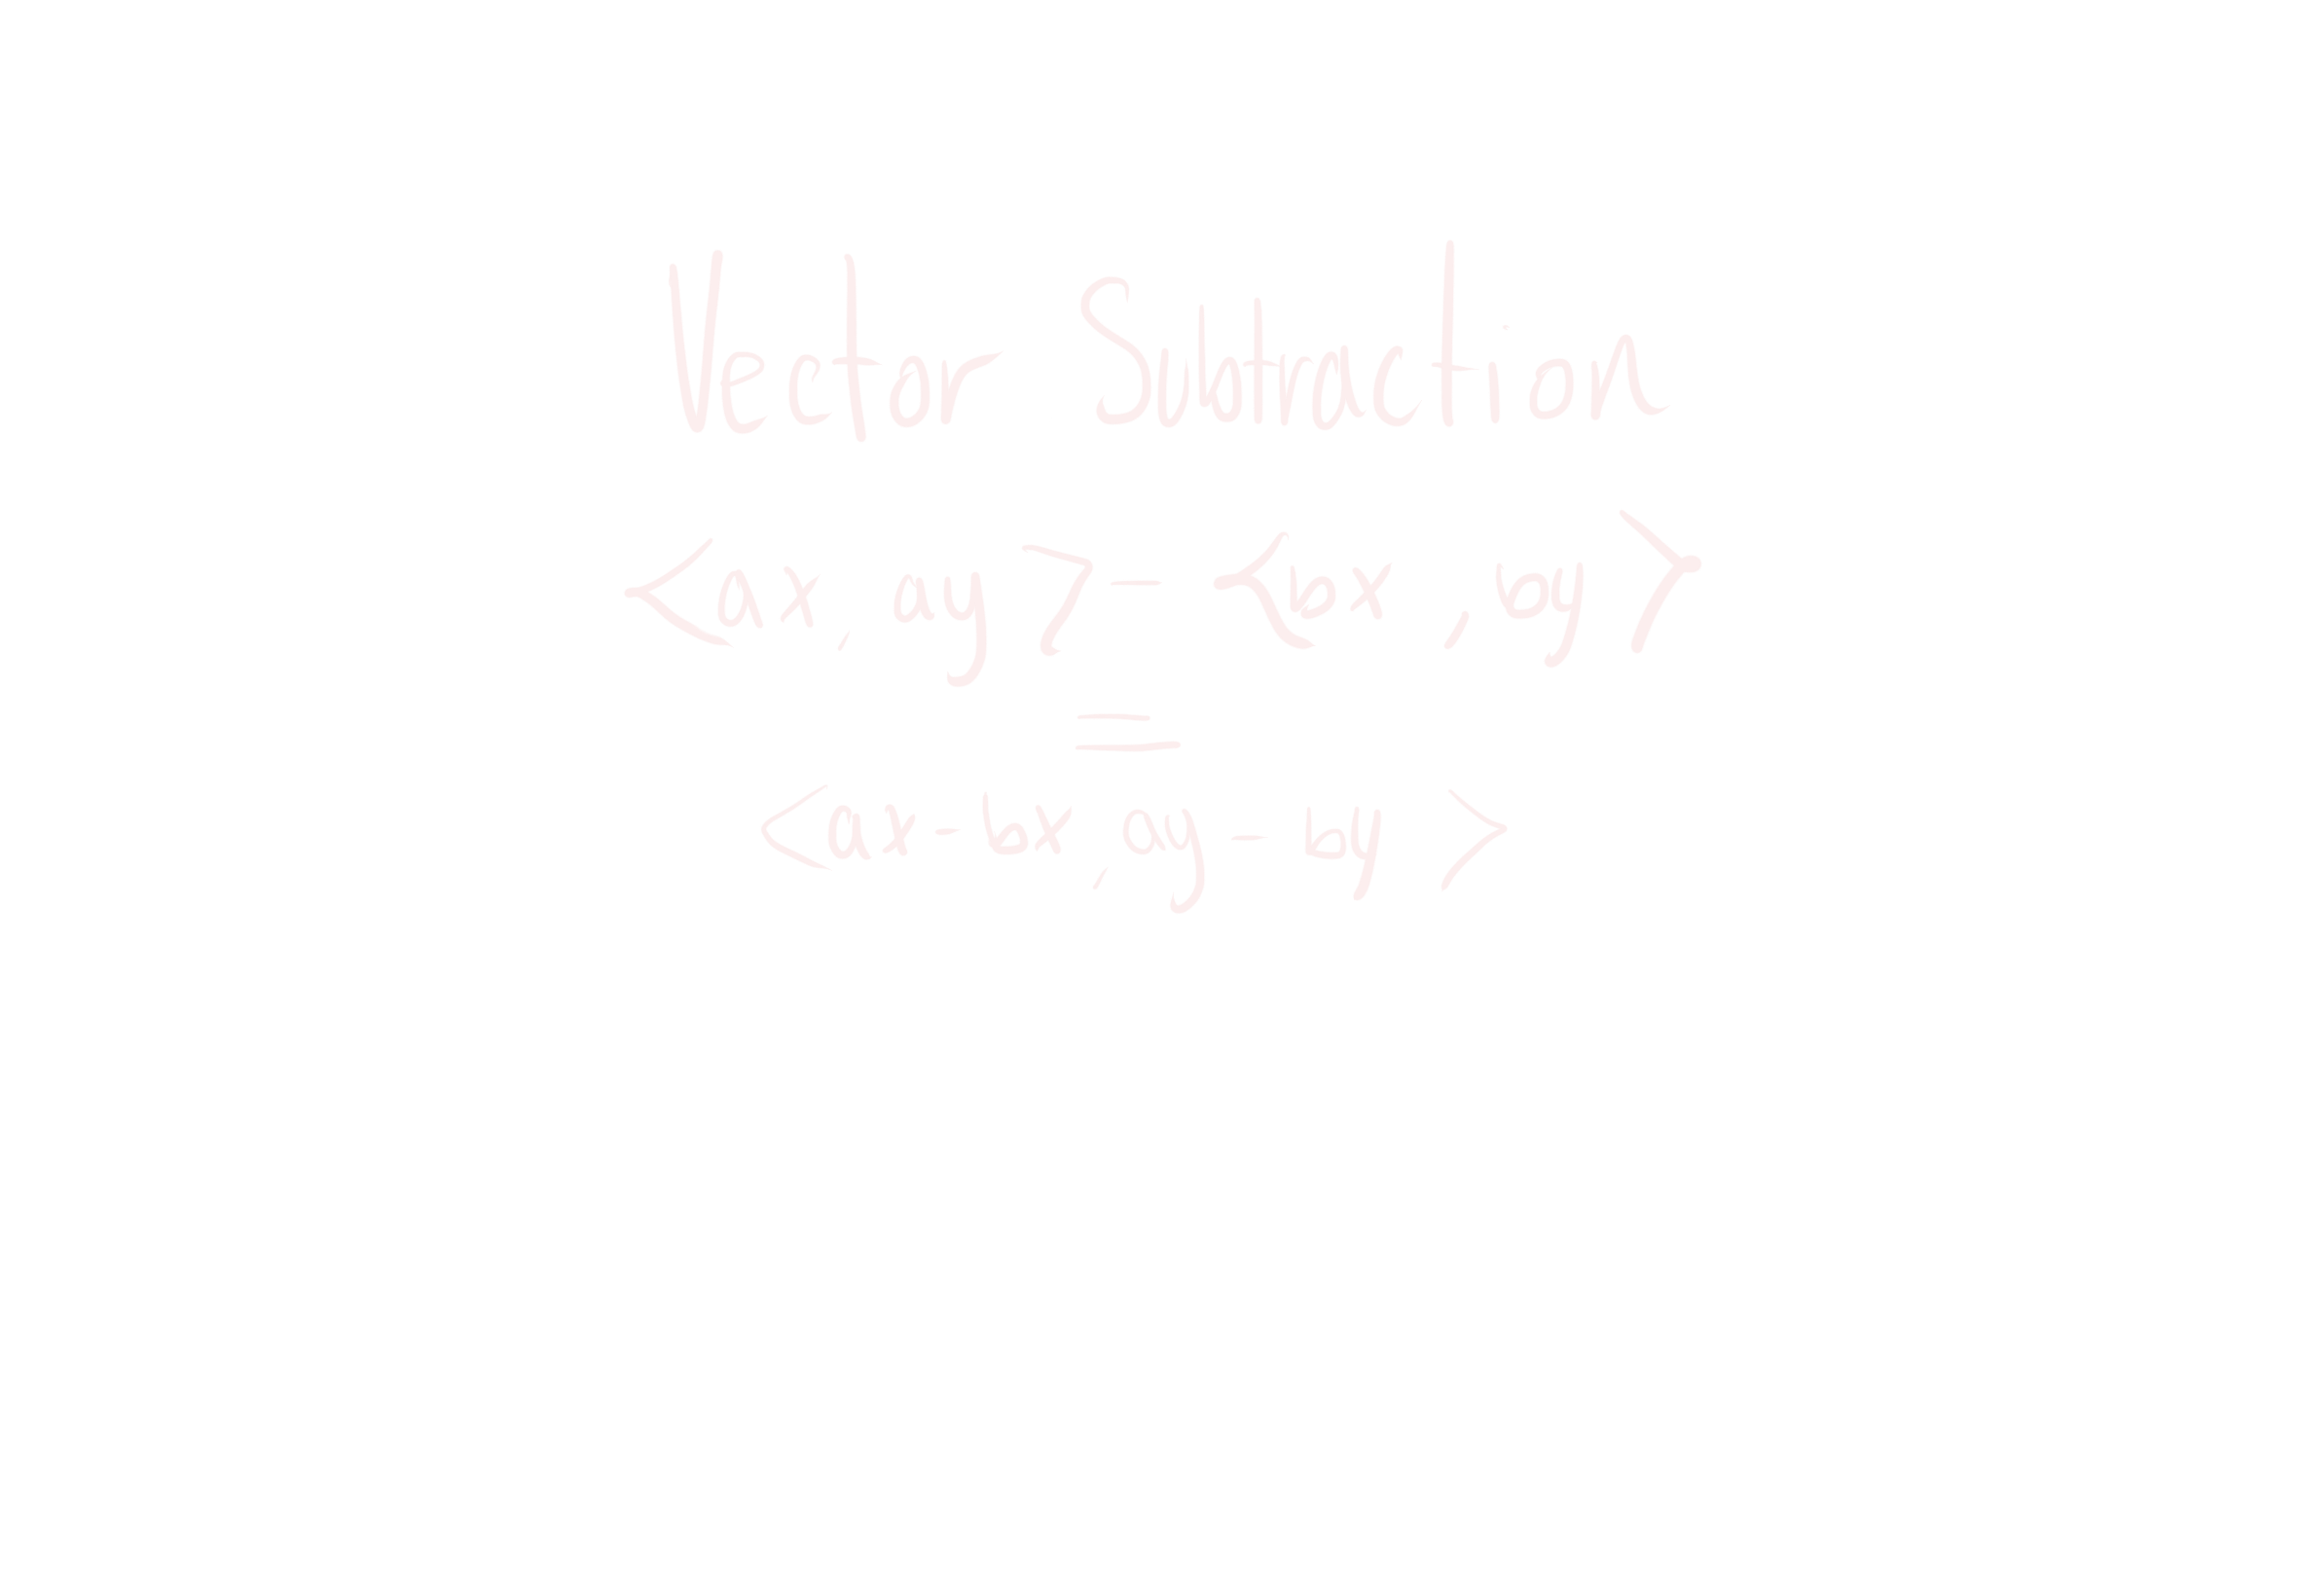 Vector Subtraction
<ax, ay> - <bx, by>
=
<ax - bx, ay - by>